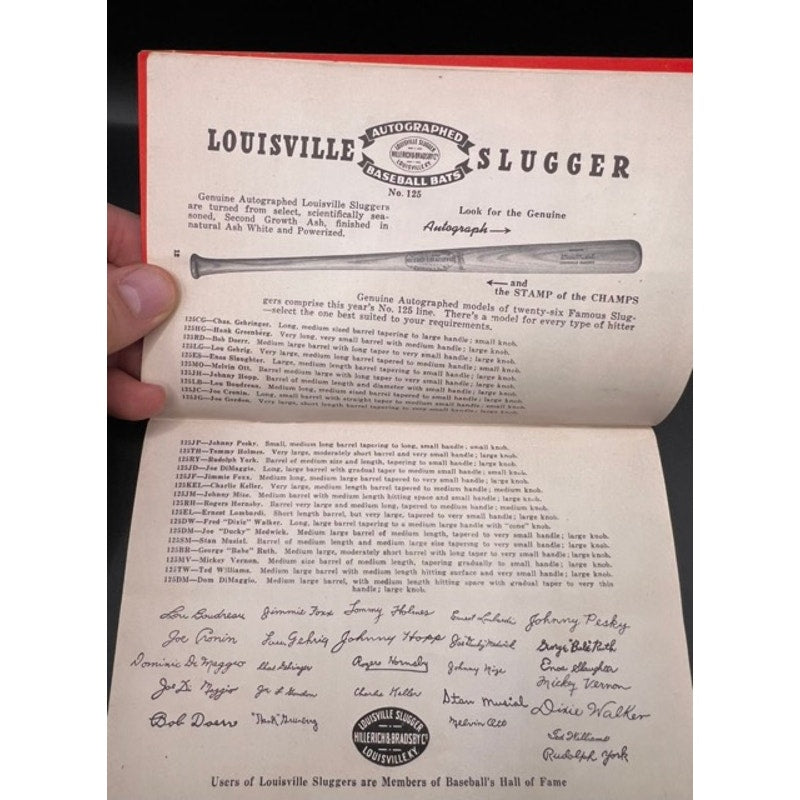 LOUISVILLE
AUTOGRAPHED
LOUISVILLE SLUGGER
HILLERICH & BRADSBY Co
LOUISVILLE, KY.
BASEBALL BATS
SLUGGER
No. 125
Genuine Autographed Louisville Sluggers
are turned from select, scientifically sea-
soned, Second Growth Ash, finished in
natural Ash White and Powerized.
Look for the Genuine
Autograph
and
the STAMP of the CHAMPS
Genuine Autographed models of twenty-six Famous Slug-
gers comprise this year's No. 125 line. There's a model for every type of hitter
—select the one best suited to your requirements.
125CG—Chas. Gehringer. Long, medium sized barrel tapering to large handle; small knob.
125HG—Hank Greenberg. Very long, very small barrel with medium handle; large knob.
125BD—Bob Doerr. Medium large barrel with long taper to very small handle; large knob.
125LG—Lou Gehrig. Very large, long barrel tapered to medium handle; small knob.
125ES—Enos Slaughter. Large, medium length barrel tapering to small handle; large knob.
125MO—Melvin Ott. Barrel medium large with long taper to very small handle; large knob.
125JH—Johnny Hopp. Barrel of medium length and diameter with small handle; large knob.
125LB—Lou Boudreau. Medium long, medium sized barrel tapered to small handle; large knob.
125JC—Joe Cronin. Long, small barrel with straight taper to medium small handle; small knob.
125JG—Joe Gordon. Very large, short length barrel tapering to very small handle; large knob.
125JP—Johnny Pesky. Small, medium long barrel tapering to long, small handle; small knob.
125TH—Tommy Holmes. Very large, moderately short barrel and very small handle; large knob.
125RY—Rudolph York. Barrel of medium size and length, tapering to small handle; large knob.
125JD—Joe DiMaggio. Long, large barrel with gradual taper to medium small handle; small knob.
125JF—Jimmie Foxx. Medium long, medium large barrel tapered to very small handle; large knob.
125KEL—Charlie Keller. Very large, medium length barrel tapered to medium handle; medium knob.
125JM—Johnny Mize. Medium barrel with medium length hitting space and small handle; large knob.
125RH—Rogers Hornsby. Barrel very large and medium long, tapered to medium handle; medium knob.
125EL—Ernest Lombardi. Short length barrel, but very large, tapered to very small handle; large knob.
125DW—Fred "Dixie" Walker. Long, large barrel tapering to a medium large handle with "cone" knob.
125DM—Joe "Ducky" Medwick. Medium large barrel of medium length, tapered to very small handle; large knob.
125SM—Stan Musial. Barrel of medium length and medium large size tapering to very small handle; large knob.
125BR—George "Babe" Ruth. Medium large, moderately short barrel with long taper to very small handle; large knob.
125MV—Mickey Vernon. Medium size barrel of medium length, tapering gradually to small handle; large knob.
125TW—Ted Williams. Medium large barrel with medium length hitting surface and very small handle; large knob.
125DM—Dom DiMaggio. Medium large barrel, with medium length hitting space with gradual taper to very thin
handle; large knob.
Lou Boudreau Jimmie Foxx Tommy Holmes Ernest Lombardi Johnny Pesky
Joe Cronin Lou Gehrig Johnny Hopp Joe Ducky Medwick George "Babe" Ruth
Dominic Di Maggio Chas Gehringer Rogers Hornsby Johnny Mize Enos Slaughter
Mickey Vernon
Joe Di Maggio Joe L. Gordon Charlie Keller Stan Musial Dixie Walker
Bob Doerr "Hank" Greenberg Melvin Ott
Ted Williams
Rudolph York
LOUISVILLE SLUGGER
HILLERICH & BRADSBY Co
LOUISVILLE, KY.
Users of Louisville Sluggers are Members of Baseball's Hall of Fame